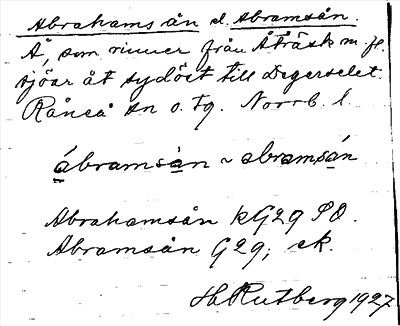 Abrahamsån el. Abramsån.
Å, som rinner från Åträsk m. fl.
sjöar åt sydöst till Degerselet.
Råneå sn o. tg. Norrb. l.
ábramsàn ~ abramsán
Abrahamsån kG29 SO.
Abramsån G29; ek.
Hd Rutberg 1927